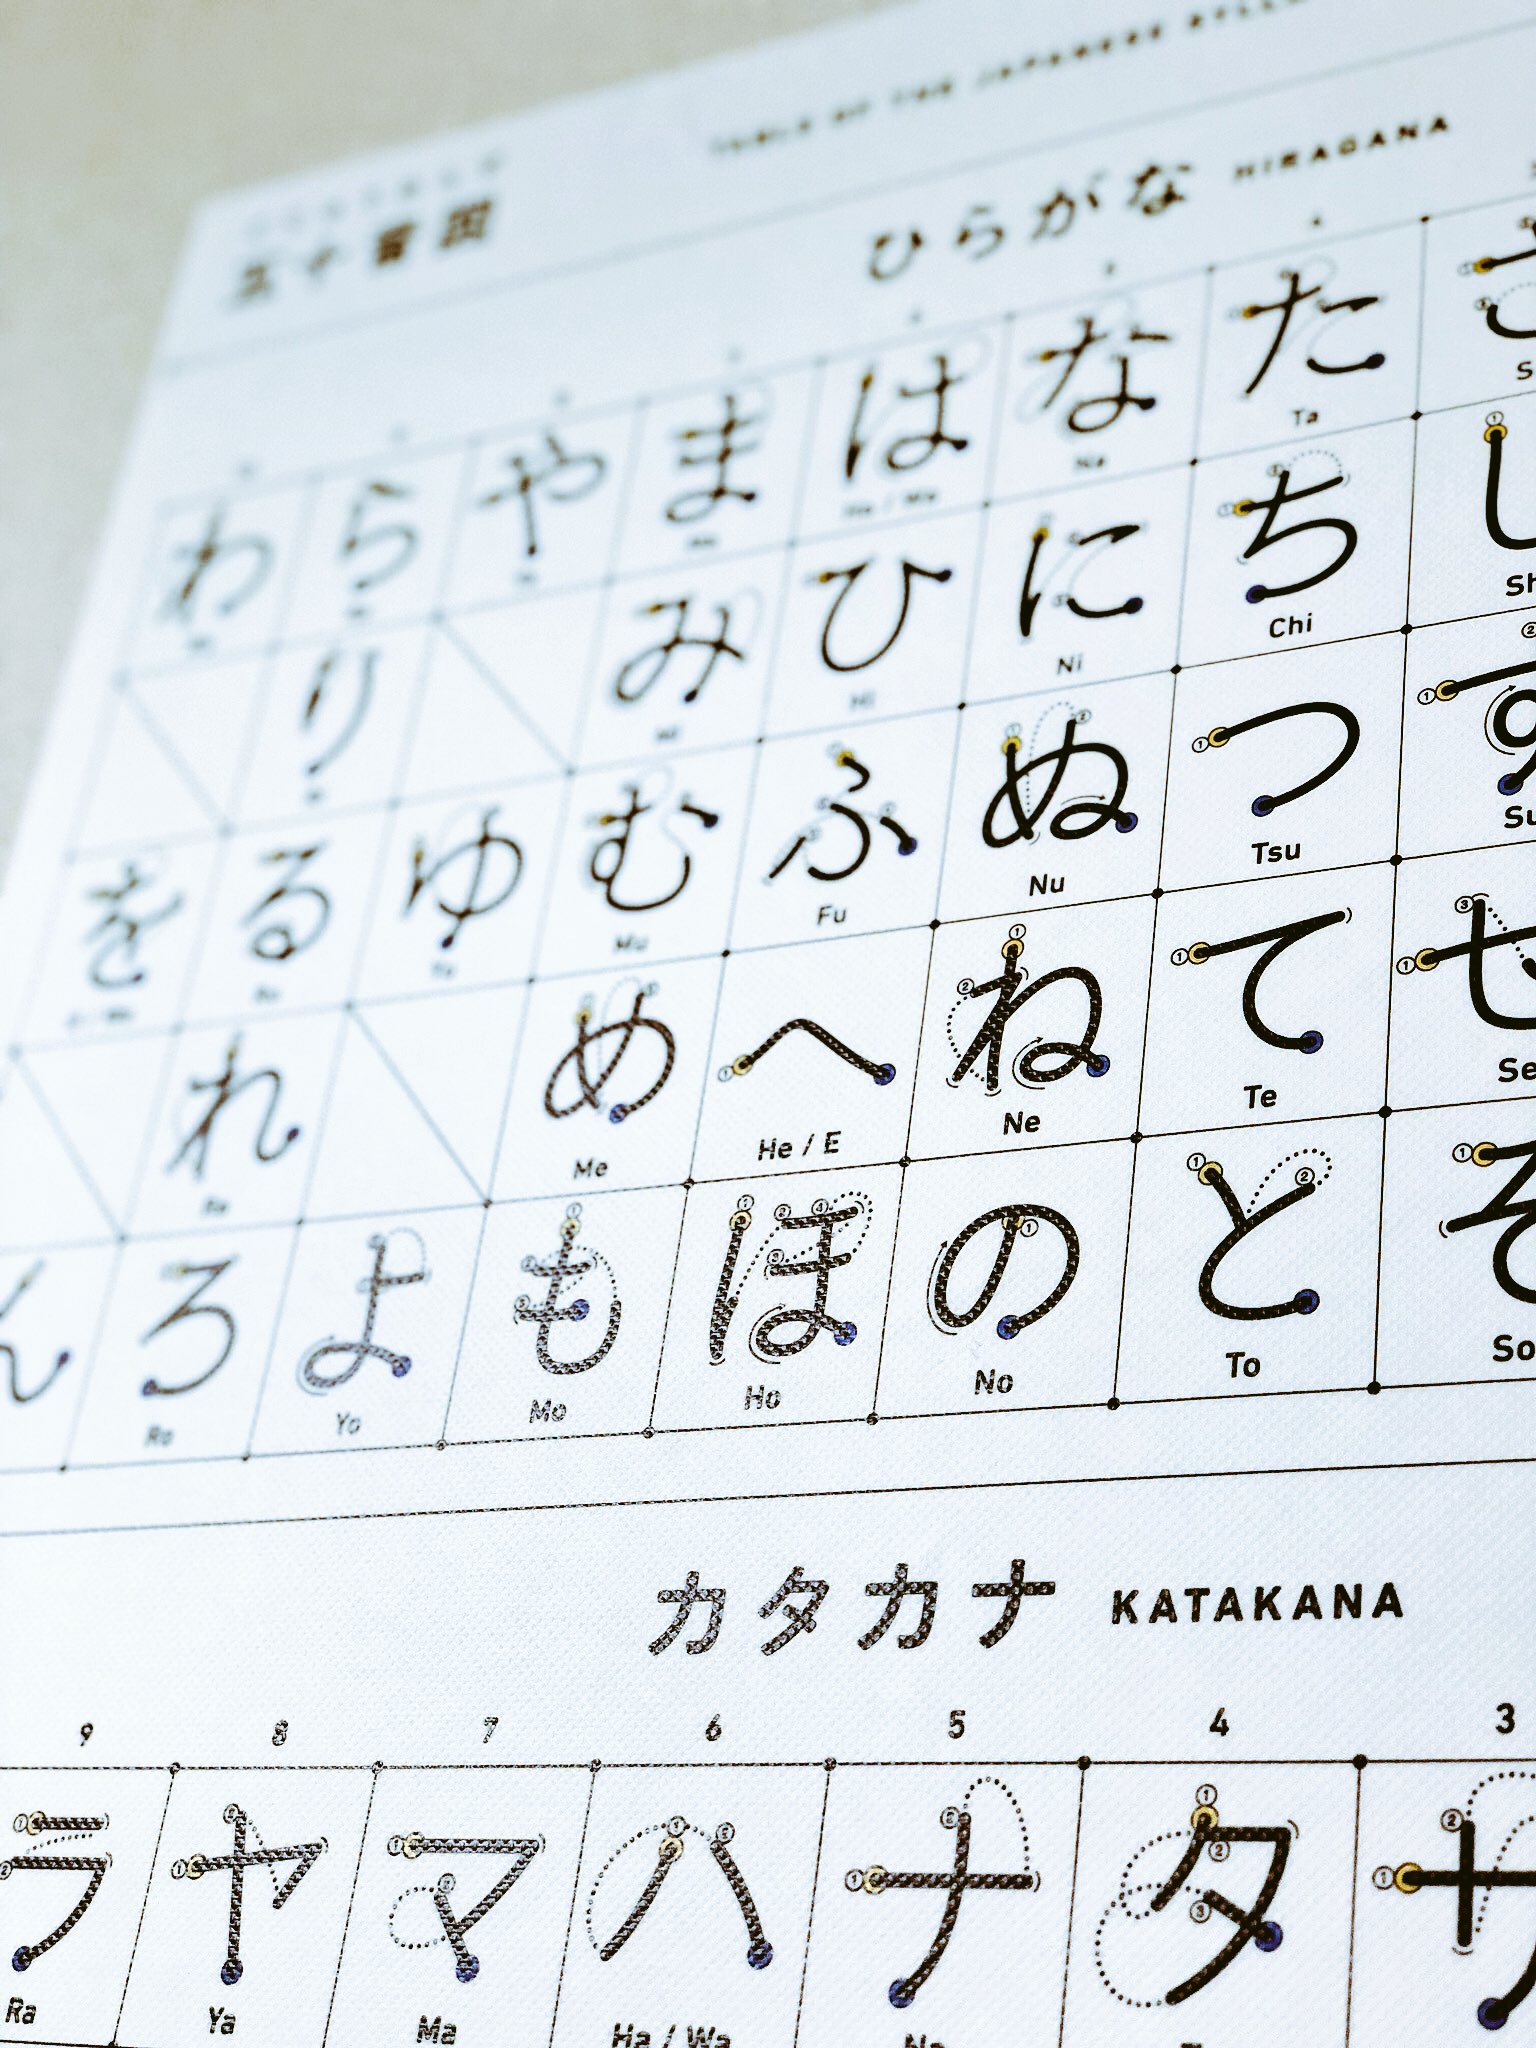 五十音図
TABLE OF THE JAPANESE SYLL
ひらがな HIRAGANA
わ ら や ま は な た
Ma Ha / Wa Na Ta S
り み ひ に ち し
Mi Hi Ni Chi Sh
を る ゆ む ふ ぬ つ す
Ru Yu Mu Fu Nu Tsu Su
れ め へ ね て せ
Re Me He / E Ne Te Se
ん ろ よ も ほ の と そ
Ro Yo Mo Ho No To So
カタカナ KATAKANA
9 8 7 6 5 4 3
ラ ヤ マ ハ ナ タ サ
Ra Ya Ma Ha / Wa Na